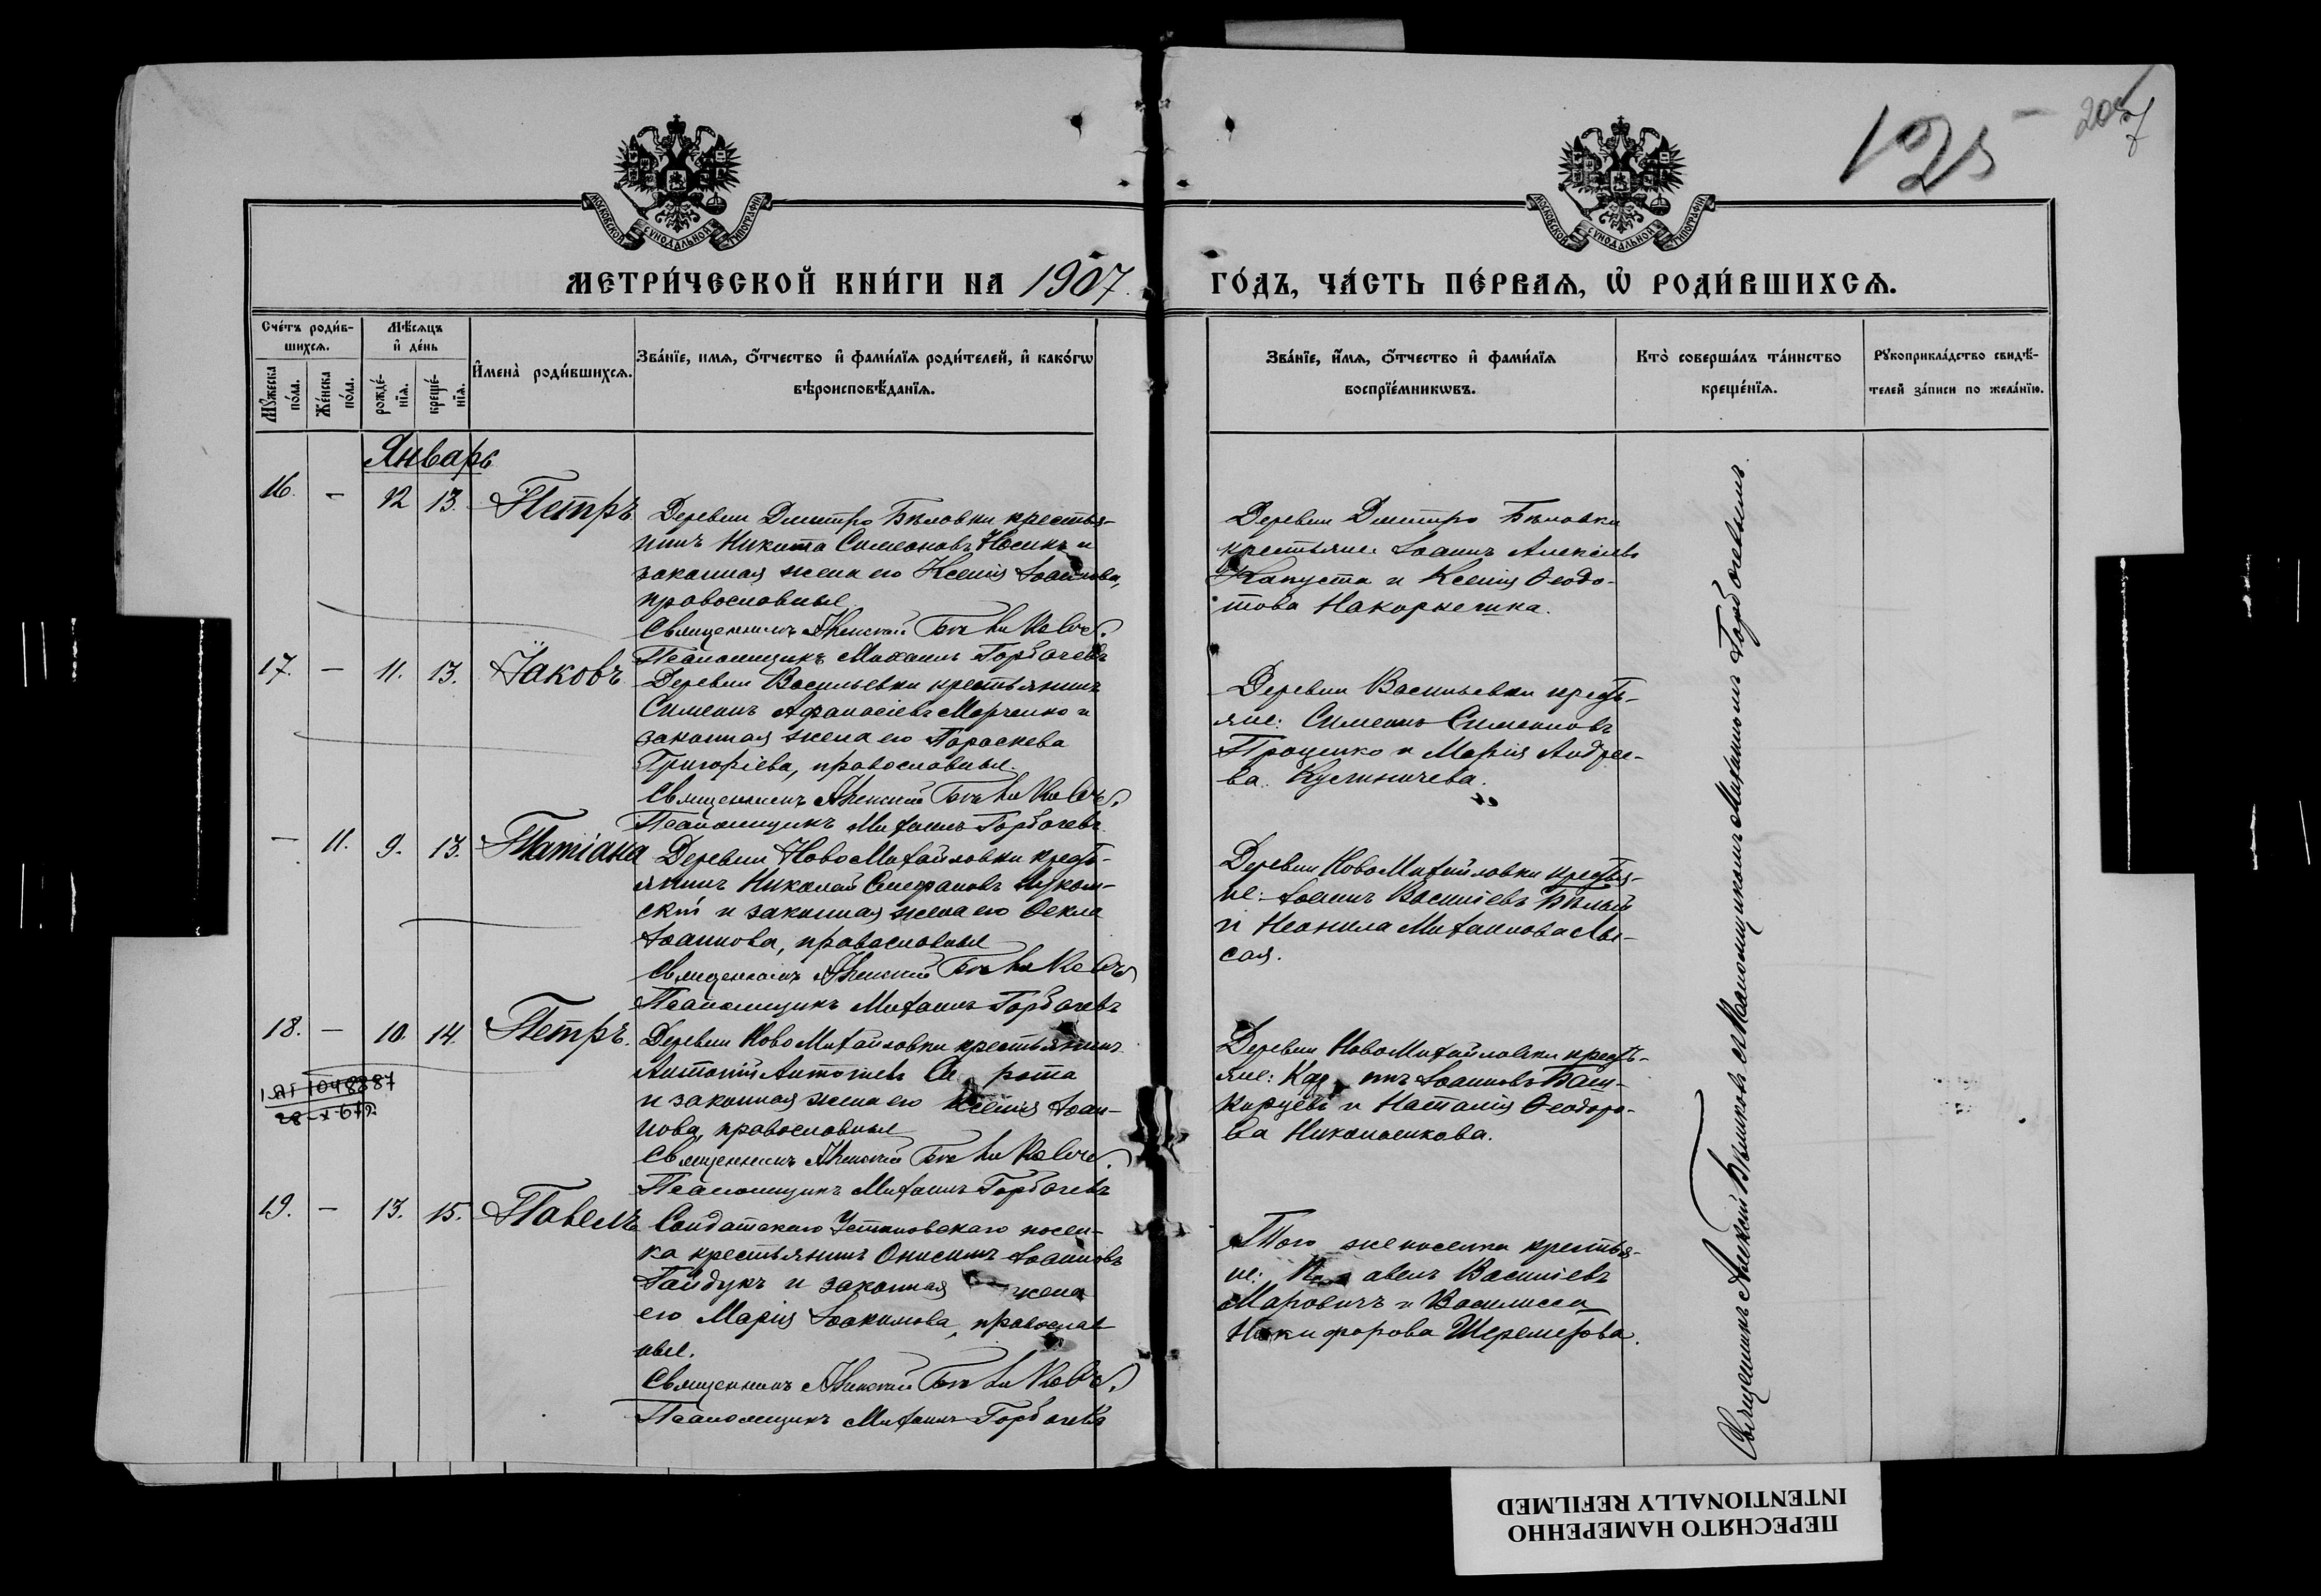 125
МОСКОВСКОЙ СѴНОДАЛЬНОЙ ТИПОГРАФІИ
МОСКОВСКОЙ СѴНОДАЛЬНОЙ ТИПОГРАФІИ
МЕТРИ́ЧЕСКОЙ КНИ́ГИ НА 1907
ГО́ДЪ, ЧА́СТЬ ПЕ́РВАѦ, Ѡ҆ РОДИ́ВШИХСѦ.
Сче́тъ роди́в-
шихсѧ.
Мꙋ́жеска по́ла.
Же́нска по́ла.
Мѣ́сѧцъ
и҆ де́нь
рожде́-
нїѧ.
креще́-
нїѧ.
И҆мена̀ роди́вшихсѧ.
Зва́нїе, имѧ, ѻ҆́тчество и҆ фами́лїѧ роди́телей, и҆ како́гѡ
вѣроисповѣ́данїѧ.
Зва́нїе, и҆́мѧ, ѻ҆́тчество и҆ фами́лїѧ
воспрїе́мникѡвъ.
Кто̀ соверша́лъ та́инство
креще́нїѧ.
Рꙋкоприкла́дство свидѣ́-
телей за́писи по жела́нїю.
Январь
16. - 12 13. Петръ
Деревни Дмитро Бѣловки крестья-
нинъ Никита Симеоновъ Носикъ и
законная жена его Ксенія Іоаннова,
православные
Священникъ Алексій Бѣликовъ.
Псаломщикъ Михаилъ Горбачевъ
Деревни Дмитро Бѣловки
крестьяне: Іоаннъ Алексіевъ
Капуста и Ксенія Ѳеодо-
това Накорнешка.
17. - 11. 13. Іаковъ
Деревни Васильевки крестьянинъ
Симеонъ Афанасіевъ Марченко и
законная жена его Параскева
Григоріева, православные.
Священникъ Алексій Бѣликовъ.
Псаломщикъ Михаилъ Горбачевъ
Деревни Васильевки кресть-
яне: Симеонъ Симеоновъ
Проценко и Марія Андрее-
ва Кусиничева.
- 11. 9. 13. Татіана
Деревни НовоМихайловки кресть-
янинъ Николай Стефановъ Луком-
скій и законная жена его Ѳекла
Іоаннова, православные
Священникъ Алексій Бѣликовъ
Псаломщикъ Михаилъ Горбачевъ
Деревни НовоМихайловки крестья-
не: Іоаннъ Василіевъ Бѣлый
и Неонила Михаилова Лы-
сая.
18. - 10. 14. Петръ.
1 ЯГ 1048887
Деревни НовоМихайловки крестьянинъ
Антоній Антоніевъ Си рота
и законная жена его Ксенія Іоан-
нова, православные
Священникъ Алексій Бѣликовъ.
Псаломщикъ Михаилъ Горбачевъ
Деревни НовоМихайловки кресть-
яне: Іоанновъ Баш-
кирцевъ и Наталія Ѳеодоро-
ва Никольникова.
19. - 13. 15. Павелъ
Солдатскаго Устиновскаго посел-
ка крестьянинъ Онисимъ Іоанновъ
Гайдукъ и законная жена
его Марія Іоакимова, православ
ные.
Священникъ Алексій Бѣликовъ.
Псаломщикъ Михаилъ Горбачевъ
Того же поселка крестья-
не: Павелъ Василіевъ
Маровичъ и Василисса
Никифорова Шереметова.
Священникъ Алексій Бѣликовъ съ Псаломщикомъ Михаиломъ Горбачевымъ.
ПЕРЕСНЯТО НАМЕРЕННО
INTENTIONALLY REFILMED